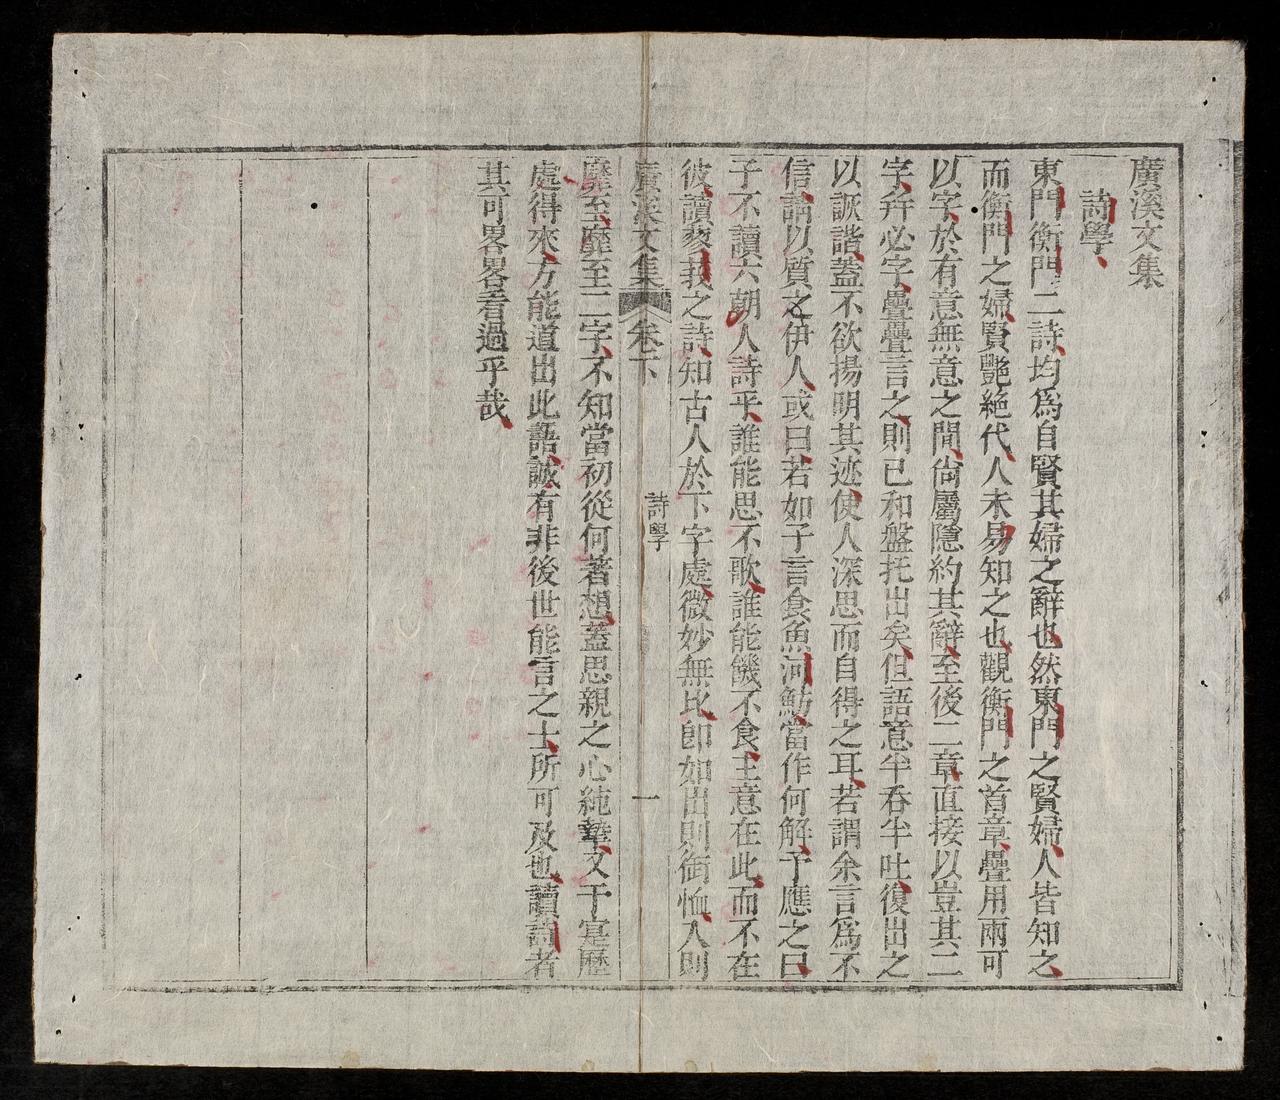 廣溪文集
詩學
東門衡門二詩均爲自賢其婦之辭也然東門之賢婦人皆知之
而衡門之婦賢艷絕代人未易知之也觀衡門之首章疊用兩可
以字於有意無意之間尙屬隱約其辭至後二章直接以豈其二
字幷必字疊疊言之則已和盤托出矣但語意半吞半吐復出之
以詼諧蓋不欲揚明其迹使人深思而自得之耳若謂余言爲不
信請以質之伊人或曰若如子言食魚河魴當作何解予應之曰
子不讀六朝人詩乎誰能思不歌誰能饑不食主意在此而不在
彼讀蓼莪之詩知古人於下字處微妙無比卽如出則銜恤入則
廣溪文集 卷下 詩學 一
靡至靡至二字不知當初從何著想蓋思親之心純摯又于寔歷
處得來方能道出此語誠有非後世能言之士所可及也讀詩者
其可畧畧看過乎哉